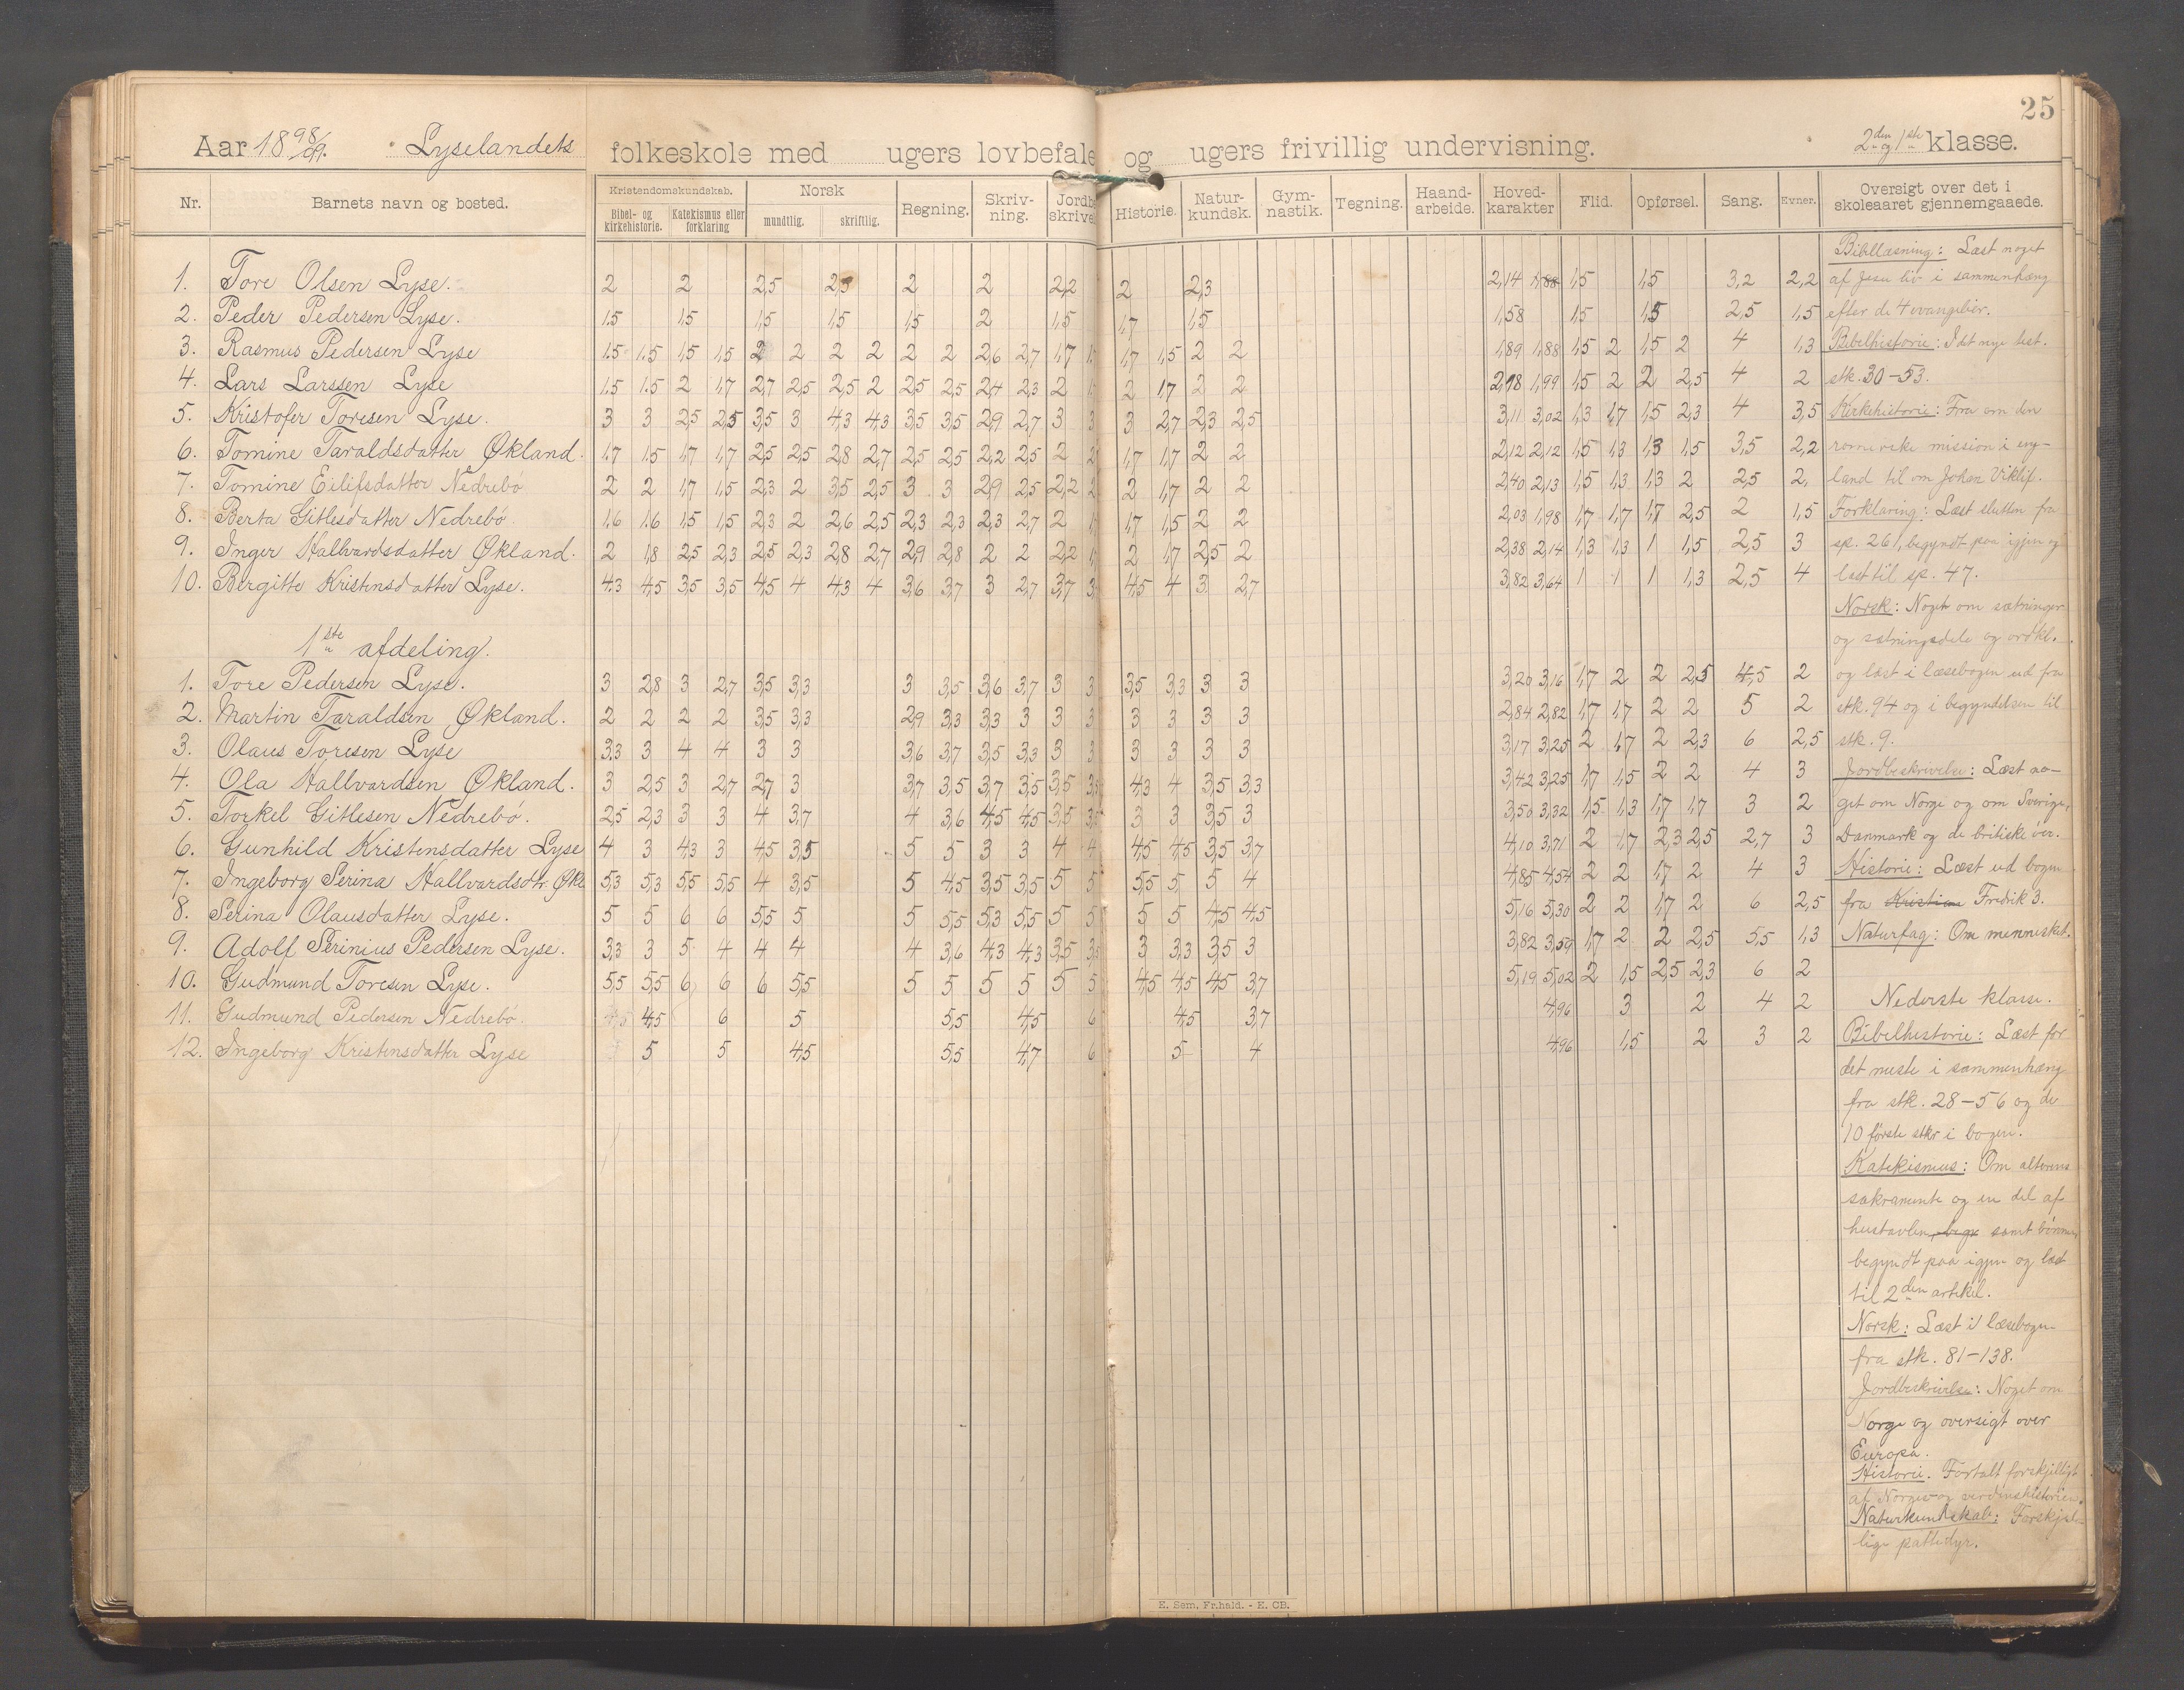 25
Aar 18 98/99. Lyselandets folkeskole med ugers lovbefale og ugers frivillig undervisning. 2den og 1ste klasse.
Nr. Barnets navn og bosted. Kristendomskundskab. Norsk Regning. Skriv-ning. Jordb skrivel Historie. Natur-kundsk. Gym-nastik. Tegning. Haand-arbeide. Hoved-karakter Flid. Opførsel. Sang. Evner. Oversigt over det i skoleaaret gjennemgaaede.
Bibel- og kirkehistorie. Katekismus eller forklaring mundtlig. skriftlig.
1. Tore Olsen Lyse. 2 2 2,5 2,3 2 2 2,2 2 2,3 2,14 1,88 1,5 1,5 3,2 2,2
2. Peder Pedersen Lyse. 1.5 1,5 1,5 1,5 1,5 2 1,5 1,7 1,5 1,58 1,5 1,5 2,5 1,5
3. Rasmus Pedersen Lyse 1.5 1.5 1,5 1,5 2 2 2 2 2 2 2,6 2,7 1,7 1,7 1,5 2 2 1,89 1,88 1,5 2 1,5 2 4 1,3
4. Lars Larssen Lyse 1.5 1.5 2 1,7 2,7 2,5 2,5 2 2,5 2,5 2,4 2,3 2 2 1,7 2 2 2,18 1,99 1,5 2 2 2,5 4 2
5. Kristofer Toresen Lyse. 3 3 2,5 2,5 3,5 3 4,3 4,3 3,5 3,5 2,9 2,7 3 3 3 2,7 2,3 2,5 3,11 3,02 1,3 1,7 1,5 2,3 4 3,5
6. Tomine Taraldsdatter Økland. 1,7 1.5 1,7 1,7 2,5 2,5 2,8 2,7 2,5 2,5 2,2 2,5 2 2 1,7 1,7 2 2 2,12 2,12 1,5 1,3 1,3 1,5 3,5 2,2
7. Tomine Eilifsdatter Nedrebø 2 2 1,7 1,5 2,3 2 3,5 2,5 3 3 2,9 2,5 2,2 2 2 1,7 2 2 2,40 2,13 1,5 1,3 1,3 2 2,5 2,
8. Berta Gitlesdatter Nedrebø. 1,6 1.6 1,5 1,5 2,3 2 2,6 2,5 2,3 2,3 2,3 2,7 2 1,7 1,5 2 2 2,03 1,98 1,7 1,7 1,7 2,5 2 1,5
9. Inger Hallvardsdatter Økland. 2 1,8 2,5 2,3 2,5 2,3 2,8 2,7 2,9 2,8 2 2 2,2 2 1,7 2,5 2 2,38 2,14 1,3 1,3 1 1,5 2,5 3
10. Bergitte Kristensdatter Lyse. 4.3 4,5 3,5 3,5 4,5 4 4,3 4 3,6 3,7 3 2,7 3,7 3 4,5 4 3 2,7 3,82 3,64 1 1 1 1,3 2,5 4
1ste afdeling.
1. Tore Pedersen Lyse. 3 2,8 3 2,7 3,5 3,3 3 3,5 3,6 3,7 3 3 3,5 3,3 3 3 3,20 3,16 1,7 2 2 2,5 4,5 2
2. Martin Taraldsen Økland. 2 2 2 2 3,5 3,3 2,9 3,3 3,3 3 3 3 3 3 3 3 2,84 2,82 1,7 1,7 2 2 5 2
3. Olaus Toresen Lyse 3,3 3 4 4 3 3 3,6 3,7 3,5 3,3 3 3 3 3 3 3 3,17 3,25 2 1,7 2 2,3 6 2,5
4. Ola Hallvardsen Økland. 3 2,5 3 2,7 2,7 3 3,7 3,5 3,7 3,5 3,5 3,5 4,3 4 3,5 3,3 3,42 3,25 1,7 1,5 2 2 4 3
5. Torkel Gitlesen Nedrebø. 2,5 2,3 3 3 4 3,7 4 3,6 4,5 4,5 3,5 3,5 3 3 3,5 3 3,50 3,32 1,5 1,3 1,7 1,7 3 2
6. Gunhild Kristensdatter Lyse 4 3 4,3 3 4,5 3,5 5 5 3 3 4 4 4,5 4,5 3,5 3,7 4,10 3,71 2 1,7 2,3 2,5 2,7 3
7. Ingeborg Serina Hallvardsdtr. Økl 5,3 5,3 5,5 5,5 4 3,5 5 4,5 3,5 3,5 5 5 5,5 5 5 4 4,85 4,54 2 2 1,7 2 4 3
8. Serina Olausdatter Lyse. 5 5 6 6 5,5 5 5 5,5 5,3 5,5 5 5 5 5 4,5 4,5 5,16 5,30 2 2 1,7 2 6 2,5
9. Adolf Serinius Pedersen Lyse. 3,3 3 5 4 4 4 4 3,6 4,3 4,3 3,5 3,5 3 3,3 3,5 3 3,82 3,59 1,7 2 2 2,5 5,5 1,3
10. Gudmund Toresen Lyse. 5,5 5,5 6 6 6 5,5 5 5 5 5 5 5 4,5 4,5 4,5 3,7 5,19 5,02 2 1,5 2,5 2,3 6 2
11. Gudmund Pedersen Nedrebø. 4,5 6 5 5,5 4,5 6 4,5 3,7 4,96 3 2 4 2
12. Ingeborg Kristensdatter Lyse 5 5 4,5 5,5 4,7 6 5 4 4,96 1,5 2 3 2
Bibellæsning: Læst noget
af Jesu liv i sammenhæng
efter de 4 evangelier.
Bibelhistorie: I det nye test.
stk. 30-53.
Kirkehistorie: Fra om den
romerske mission i eng-
land til om Johan Viklif.
Forklaring: Læst slutten fra
sp. 261, begyndt paa igjen og
læst til sp. 47.
Norsk: Noget om sætninger
og sætningsdele og ordkl.
og læst i læsebogen ud fra
stk. 94 og i begyndelsen til
stk. 9.
Jordbeskrivelse: Læst no-
get om Norge og om Sverige,
Danmark og de britiske øer.
Historie: Læst ud bogen
fra Kristian Fredrik 3.
Naturfag: Om mennesket.
Nederste klasse.
Bibelhistorie: Læst for
det meste i sammenhæng
fra stk. 28-56 og de
10 første stkr i bogen.
Katekismus: Om alterens
sakramente og en del af
hustavlen, begy samt bønnen,
begyndt paa igjen og læst
til 2den artikel.
Norsk: Læst i læsebogen
fra stk. 81-138.
Jordbeskrivelse: Noget om
Norge og oversigt over
Europa.
Historie. Fortalt forskjelligt
af Norges- og verdenshistorien.
Naturkundskab: Forskjel-
lige pattedyr.
E. Sem, Fr.hald. - E. CB.